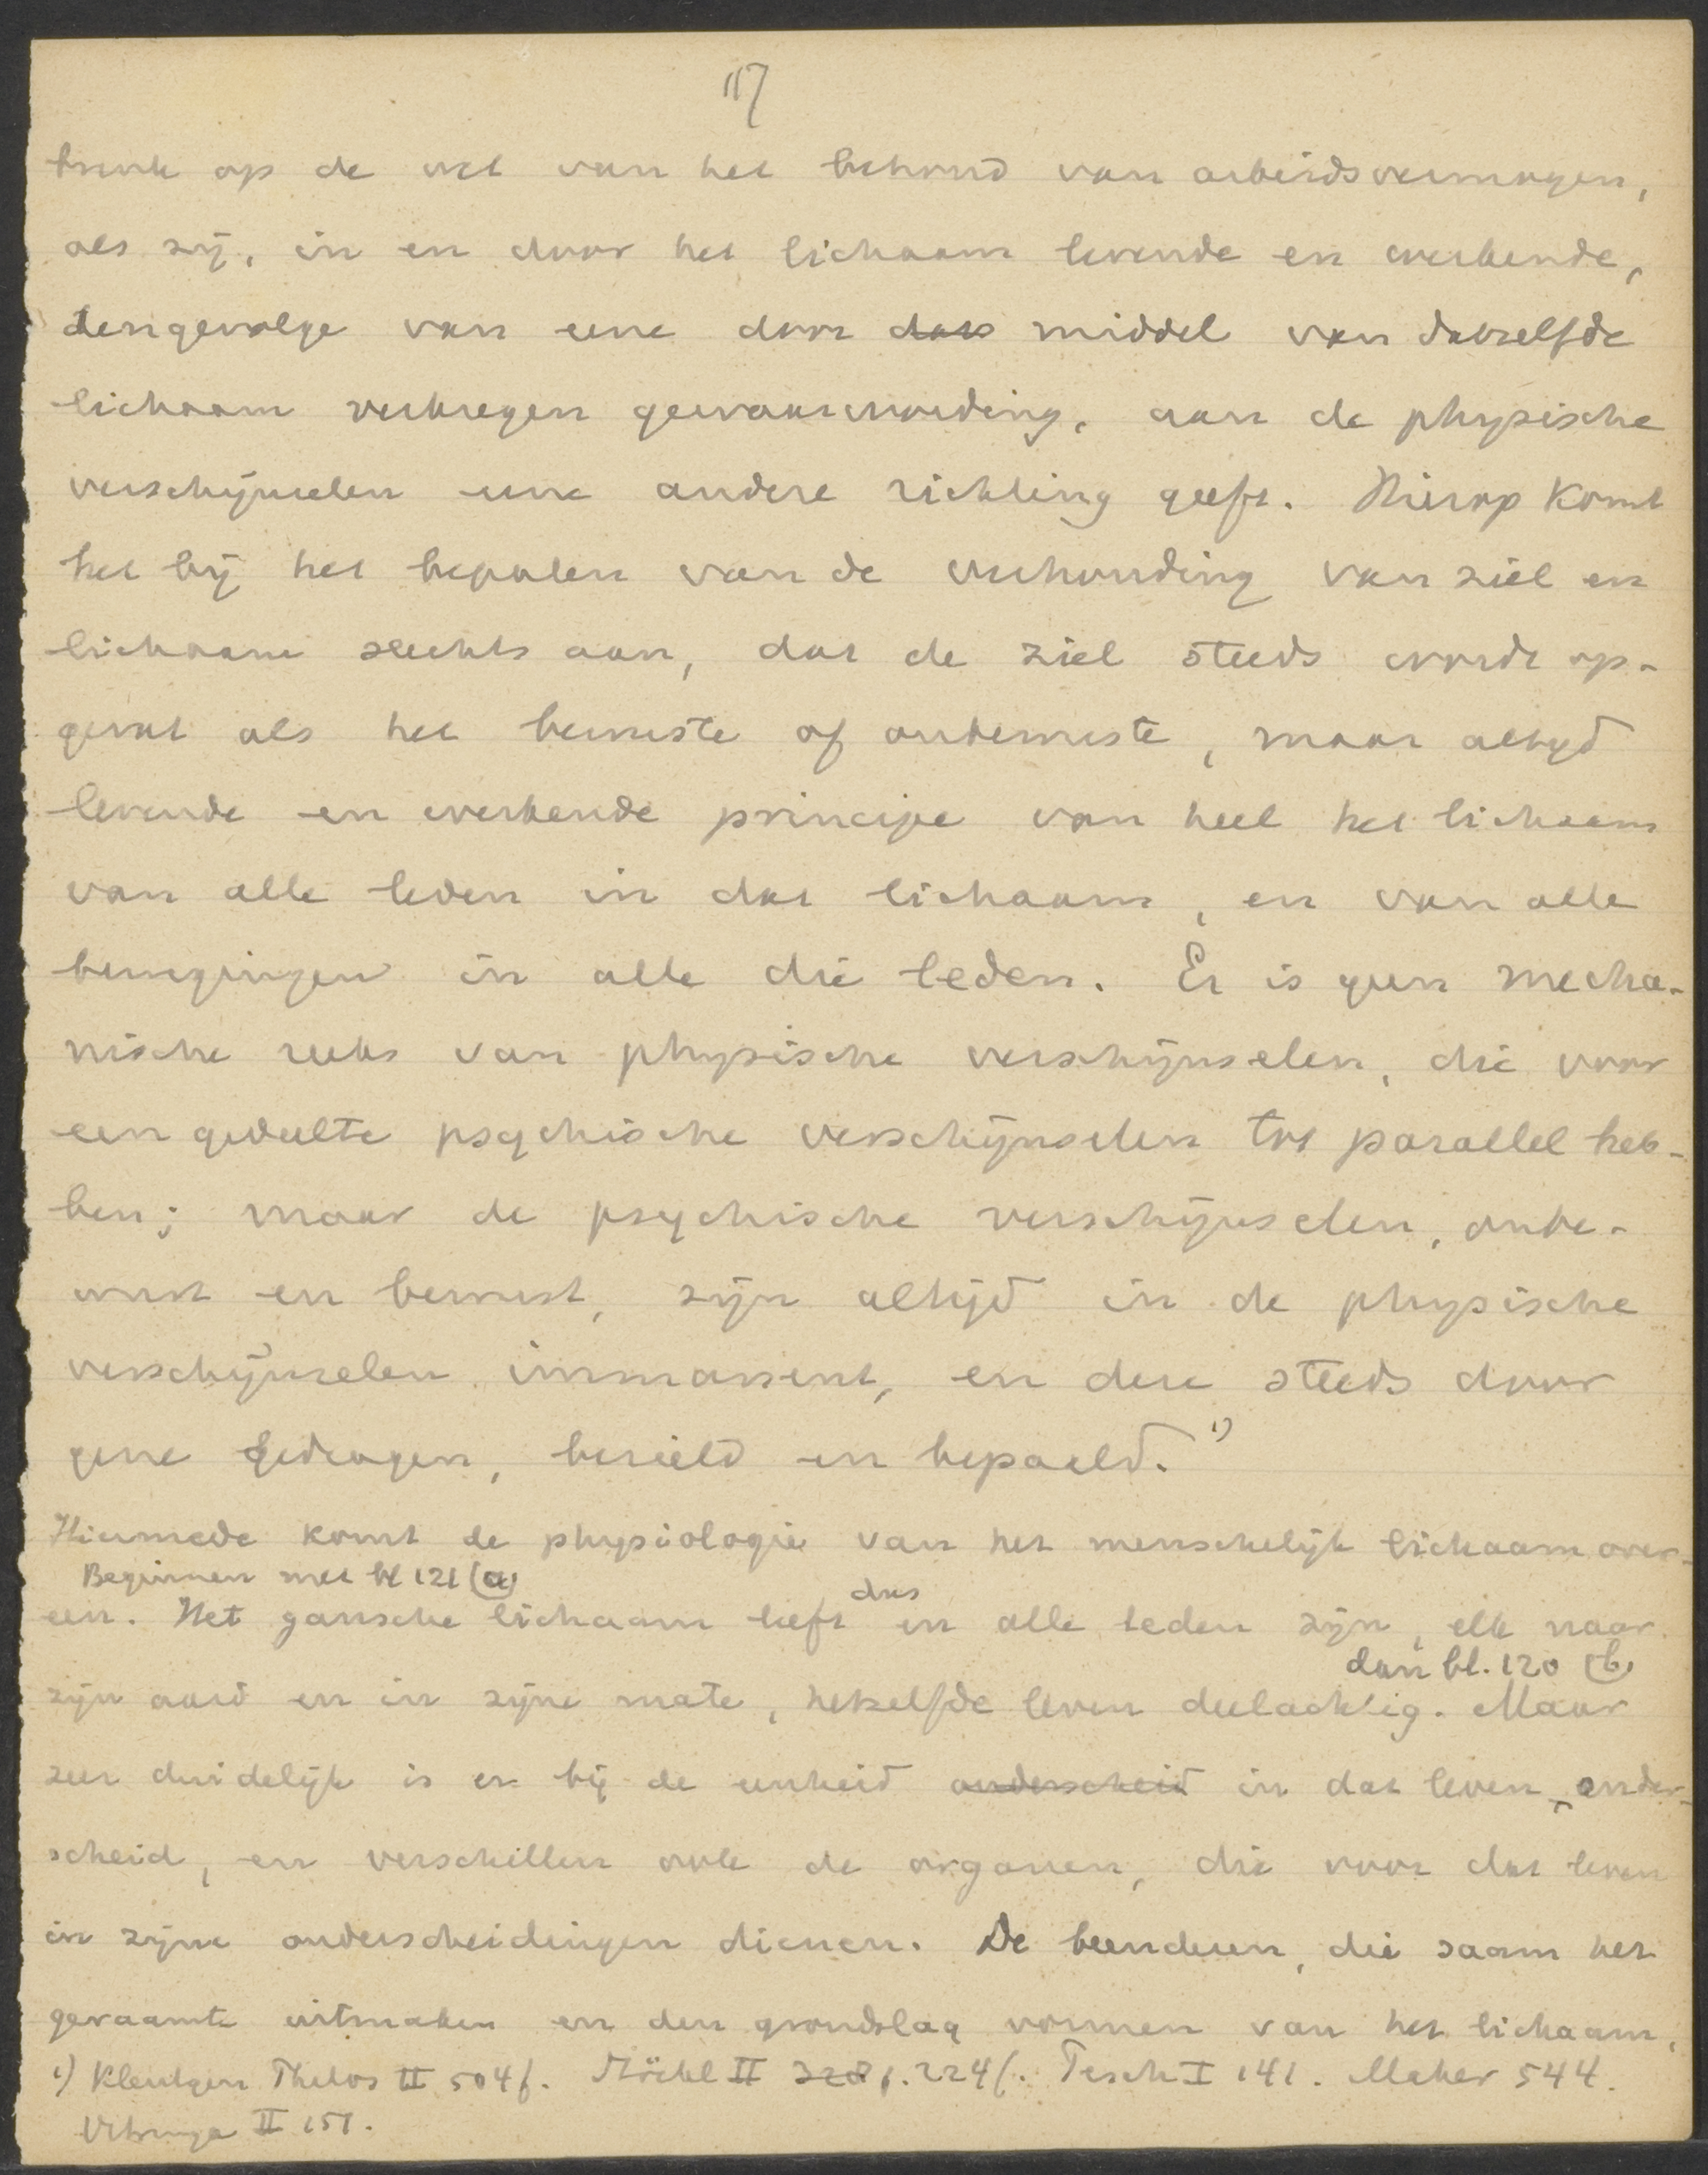 117
breuk op de wet van het behoud van arbeidsvermogen,
als zij, in en door het lichaam levende en werkende,
tengevolge van eene door dat middel van datzelfde
lichaam verkregen gewaarwording, aan de physische
verschijnselen eene andere richting geeft. Hierop komt
het bij het bepalen van de verhouding van ziel en
lichaam slechts aan, dat de ziel steeds worde op-
gevat als het bewuste of onbewuste, maar altijd
levende en werkende principe van heel het lichaam
van alle leden in dat lichaam, en van alle
bewegingen in alle die leden. Er is geen mecha-
nische reeks van physische verschijnselen, die voor
een gedeelte psychische verschijnselen tot parallel heb-
ben; maar de psychische verschijnselen, onbe-
wust en bewust, zijn altijd in de physische
verschijnselen immanent, en deze steeds door
gene gedragen, bezield en bepaald. 1)
Hiermede komt de physiologie van het menschelijk lichaam over-
Beginnen met bl 121 (a)
een. Het gansche lichaam leeft dus in alle leden zijn, elk naar
dan bl. 120 (b)
zijn aard en in zijne mate, hetzelfde leven deelachtig. Maar
zeer duidelijk is er bij de eenheid onderscheid in dat leven onder-
scheid, en verschillen ook de organen, die voor dat leven
in zijne onderscheidingen dienen. De beenderen, die saam het
geraamte uitmaken en den grondslag vormen van het lichaam,
1) Kleutgen Philos II 504f. Stöckl II 228f. 224f. Pesch I 141. Maher 544.
Urbruga II 151.